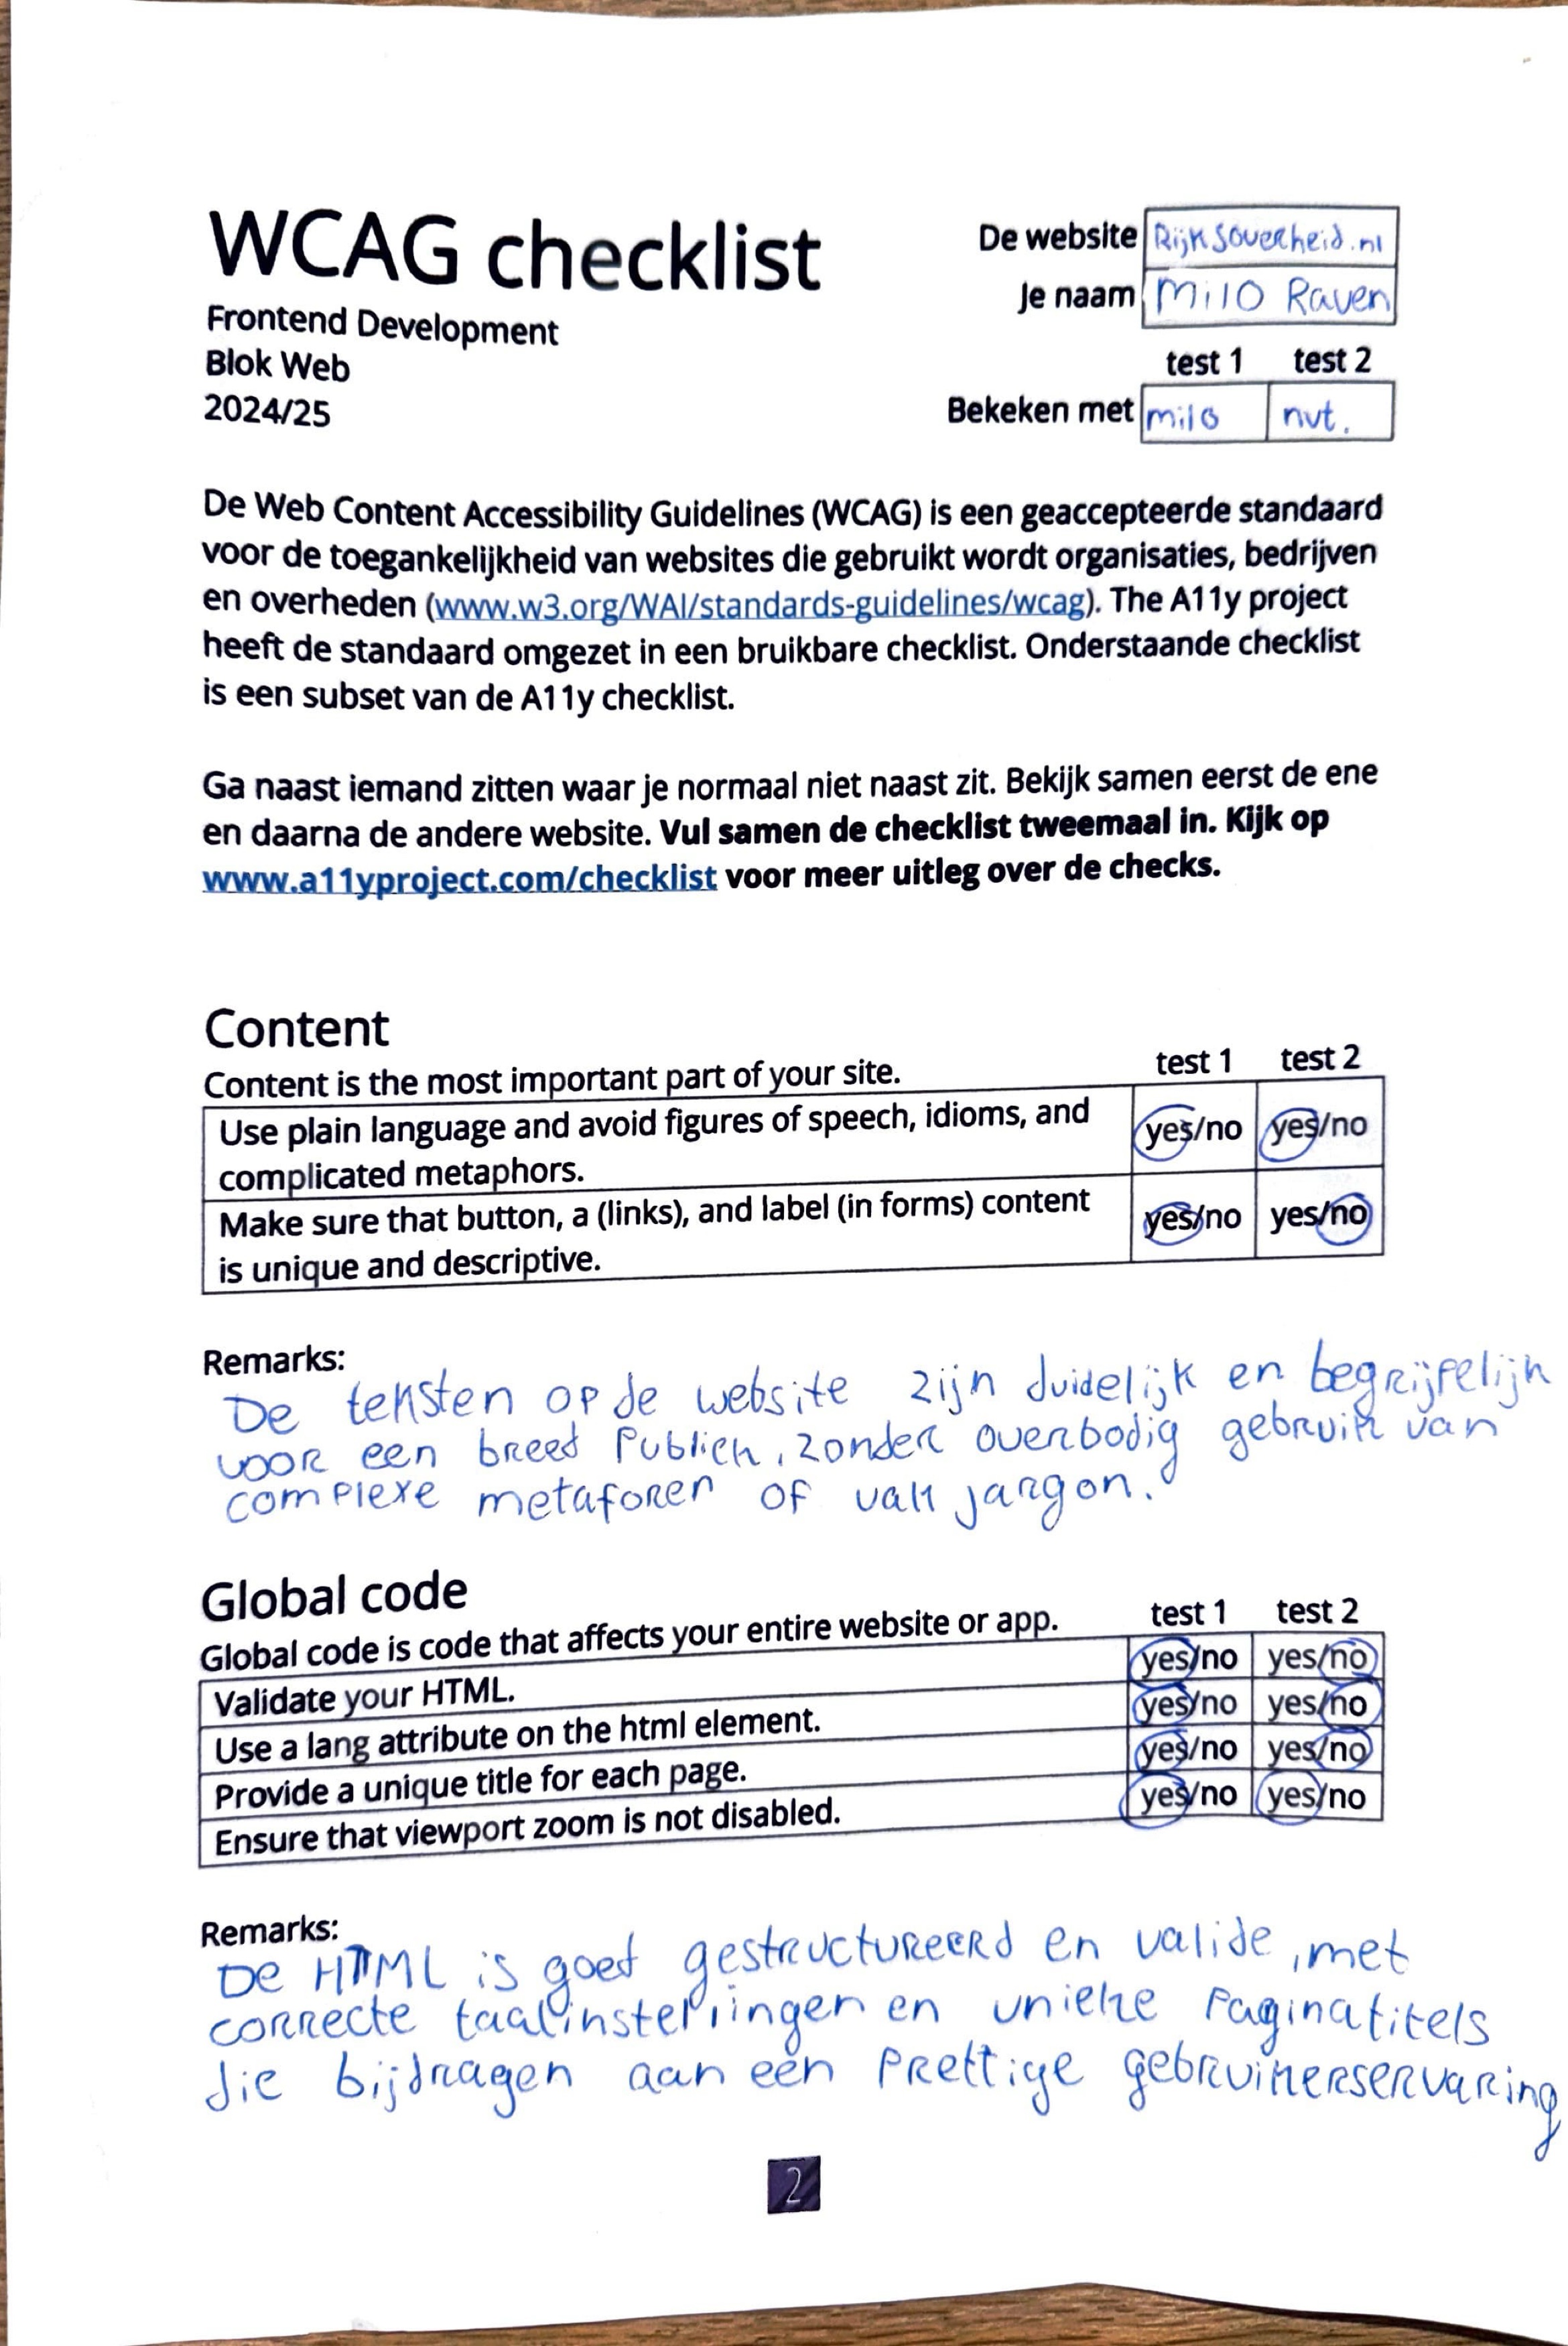 WCAG checklist
Frontend Development
Blok Web
2024/25
De website Rijksoverheid.nl
Je naam Milo Raven
test 1 test 2
Bekeken met milo nvt.
De Web Content Accessibility Guidelines (WCAG) is een geaccepteerde standaard
voor de toegankelijkheid van websites die gebruikt wordt organisaties, bedrijven
en overheden (www.w3.org/WAI/standards-guidelines/wcag). The A11y project
heeft de standaard omgezet in een bruikbare checklist. Onderstaande checklist
is een subset van de A11y checklist.
Ga naast iemand zitten waar je normaal niet naast zit. Bekijk samen eerst de ene
en daarna de andere website. Vul samen de checklist tweemaal in. Kijk op
www.a11yproject.com/checklist voor meer uitleg over de checks.
Content
Content is the most important part of your site. test 1 test 2
Use plain language and avoid figures of speech, idioms, and
complicated metaphors. yes/no yes/no
Make sure that button, a (links), and label (in forms) content
is unique and descriptive. yes/no yes/no
Remarks:
De teksten op de website zijn duidelijk en begrijpelijk
voor een breed publiek, zonder overbodig gebruik van
complexe metaforen of vakjargon.
Global code
Global code is code that affects your entire website or app. test 1 test 2
Validate your HTML. yes/no yes/no
Use a lang attribute on the html element. yes/no yes/no
Provide a unique title for each page. yes/no yes/no
Ensure that viewport zoom is not disabled. yes/no yes/no
Remarks:
De HTML is goed gestructureerd en valide, met
correcte taalinstellingen en unieke paginatitels
die bijdragen aan een prettige gebruikerservaring
2